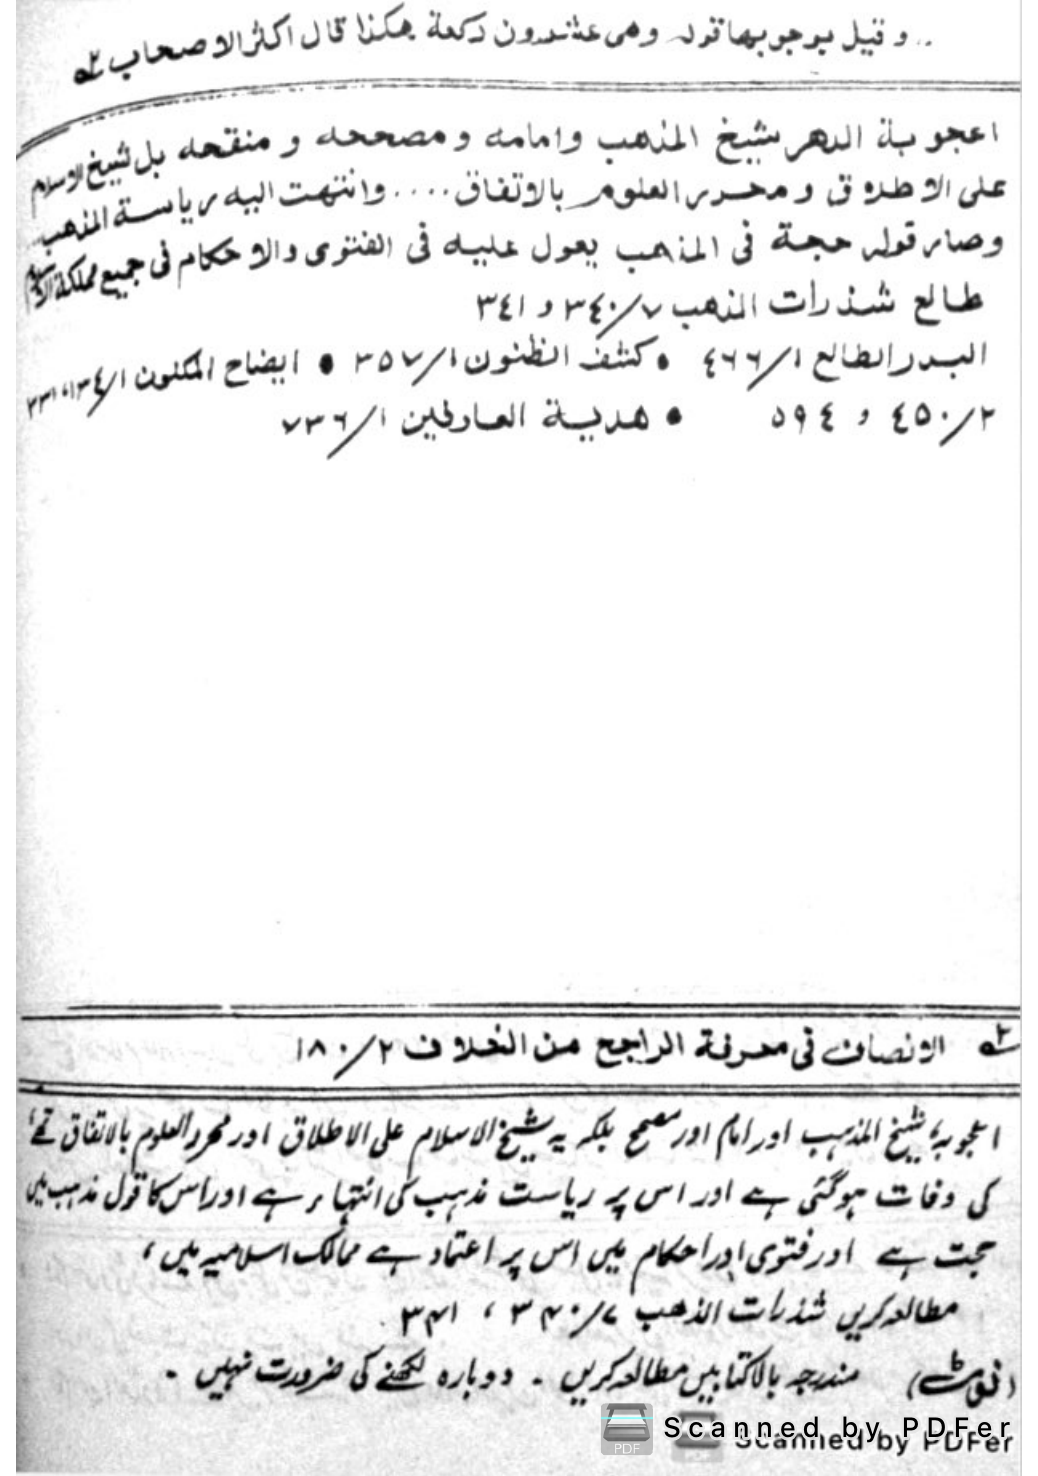 .. و قيل بوجوبها قوله وهى عشرون ركعة هكذا قال اكثر الاصحاب ٢ﻫ
اعجوبة الدهر شيخ المذهب وامامه و مصححه و منقحه بل شيخ الاسلام
على الاطلاق و محرر العلوم بالاتفاق .... وانتهت اليه رياسة المذهب
وصار قوله حجة فى المذهب يعول عليه فى الفتوى والاحكام فى جميع مملكة الاسلام
طالع شذرات المذهب ٣٤٠/٧ و ٣٤١
البدر الطالع ٤٤٦/١ • كشف الظنون ٣٥٧/١ • ايضاح المكنون ١٣٤/١،
٤٥٠/٢ و ٥٩٤ • هدية العارفين ٧٣٦/١
٢ﻫ الانصاف فى معرفة الراجح من الخلاف ١٨٠/٢
اعجوبہ، شیخ المذہب اور امام اور مصحح بلکہ یہ شیخ الاسلام علی الاطلاق اور محرر العلوم بالاتفاق تھے
کی وفات ہوگئی ہے اور اس پر ریاست مذہب کی انتہاء ہے اور اس کا قول مذہب میں
حجت ہے اور فتوی اور احکام میں اس پر اعتماد ہے ممالک اسلامیہ میں ،
مطالعہ کریں شذرات الذھب ۳۴۰/۷ ، ۳۴۱
(نوٹ) مندرجہ بالا کتابیں مطالعہ کریں ۔ دوبارہ لکھنے کی ضرورت نہیں ۔
PDF Scanned by PDFer
Scanned by PDFer